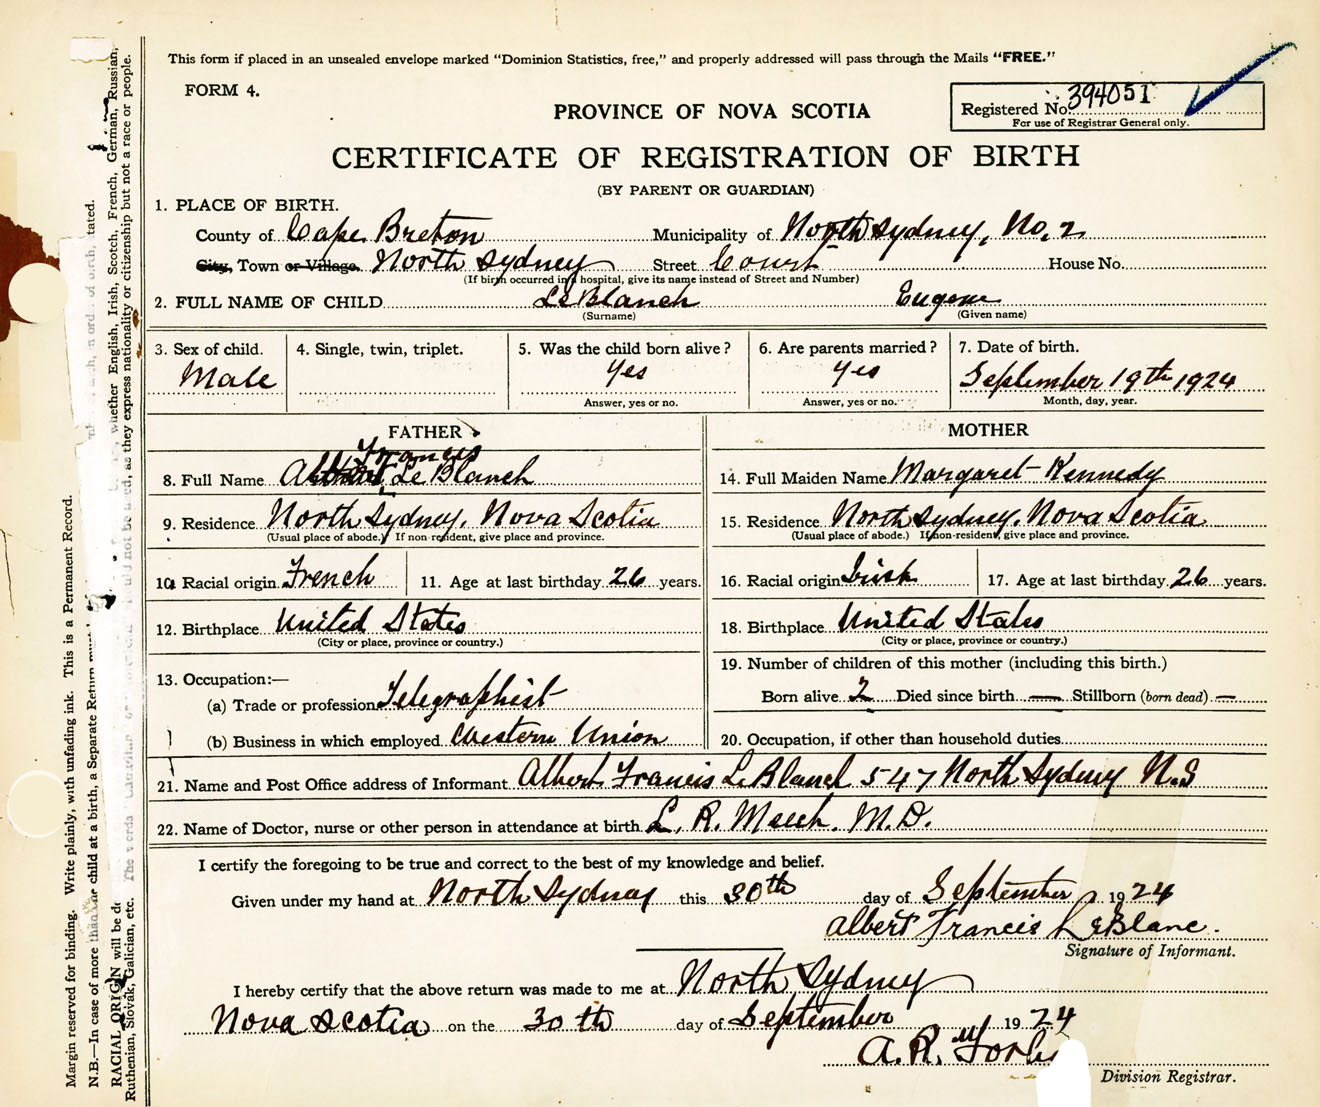 This form if placed in an unsealed envelope marked "Dominion Statistics, free," and properly addressed will pass through the Mails "FREE."
FORM 4.
PROVINCE OF NOVA SCOTIA
Registered No. 394051
For use of Registrar General only.
CERTIFICATE OF REGISTRATION OF BIRTH
(BY PARENT OR GUARDIAN)
1. PLACE OF BIRTH.
County of Cape Breton Municipality of North Sydney, No. 2
City, Town or Village. North Sydney Street Court House No.
(If birth occurred in a hospital, give its name instead of Street and Number)
2. FULL NAME OF CHILD LeBlanch Eugene
(Surname) (Given name)
3. Sex of child. 4. Single, twin, triplet. 5. Was the child born alive? 6. Are parents married? 7. Date of birth.
Male Yes Yes September 19th 1924
Answer, yes or no. Answer, yes or no. Month, day, year.
FATHER MOTHER
Francis
8. Full Name Albert Le Blanch 14. Full Maiden Name Margaret Kennedy
9. Residence North Sydney, Nova Scotia 15. Residence North Sydney, Nova Scotia
(Usual place of abode.) If non-resident, give place and province. (Usual place of abode.) If non-resident, give place and province.
10. Racial origin French 11. Age at last birthday 26 years. 16. Racial origin Irish 17. Age at last birthday 26 years.
12. Birthplace United States 18. Birthplace United States
(City or place, province or country.) (City or place, province or country.)
19. Number of children of this mother (including this birth.)
13. Occupation:—
(a) Trade or profession Telegraphist Born alive 2 Died since birth — Stillborn (born dead) —
(b) Business in which employed Western Union 20. Occupation, if other than household duties
21. Name and Post Office address of Informant Albert Francis LeBlanch 547 North Sydney N.S
22. Name of Doctor, nurse or other person in attendance at birth L. R. Meech. M.D.
I certify the foregoing to be true and correct to the best of my knowledge and belief.
Given under my hand at North Sydney this 30th day of September 1924
Albert Francis LeBlanc.
Signature of Informant.
I hereby certify that the above return was made to me at North Sydney
Nova Scotia on the 30th day of September 1924
A. R.
Division Registrar.
Margin reserved for binding. Write plainly, with unfading ink. This is a Permanent Record.
N.B.—In case of more than one child at a birth, a Separate Return must
RACIAL ORIGIN will be whether English, Irish, Scotch, French, German, Russian,
Ruthenian, Slovak, Galician, etc. The words should not be used, as they express nationality or citizenship but not a race or people.